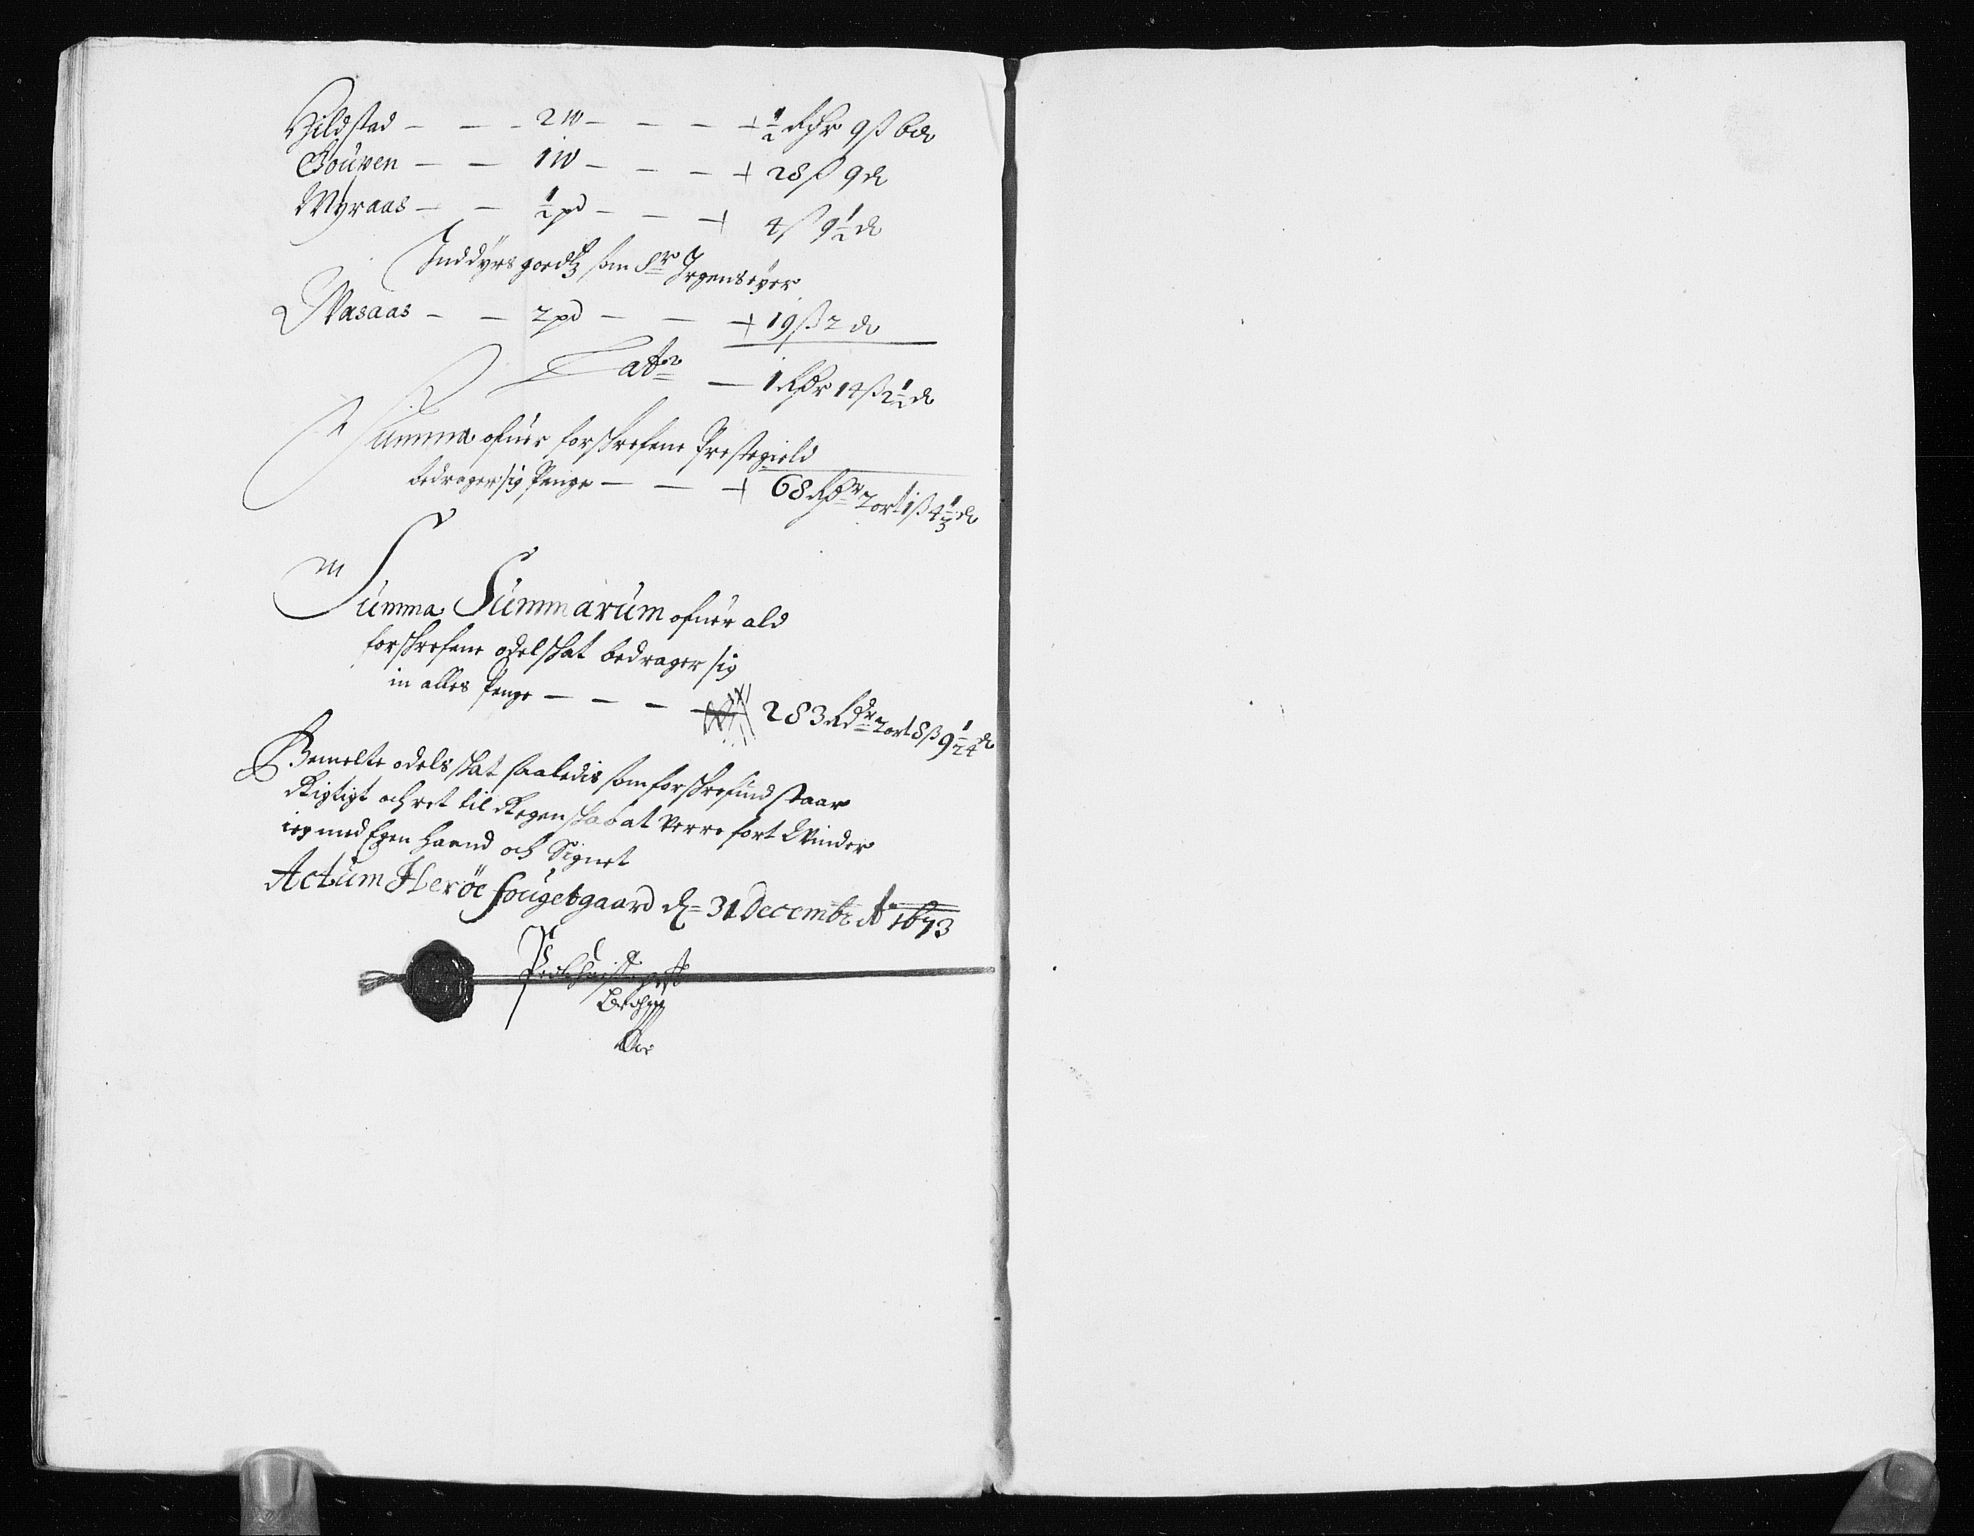 Hildstad - - - 2 W - - - - ½ Rdr 9 ß 6 d
Goupen - - 1 W - - - - 28 ß 9 d
Myraas - - ½ pd - - - 4 ß 9½ d
Inddyrs goedtz som Sr Irgens eyer
Aasaas - - 2 pd - - - 19 ß 2 d
Lat. - 1 Rdr 14 ß 2½ d
Summa ofuer forskrefene Prestegield
bedrager sig Penge - - - 68 Rdr 2 ort 1 ß 4⅓ d
Summa Summarum ofuer ald
forskrefene odelskat bedrager sig
in alles Penge - - - - 283 Rdr 2 ort 8 ß 9 1/24 d
Bemelte odelsskat saaledis som forskrefuid staar
Rigtigt och ret til Regenskab at verre fort Vinder
ieg med Egen haand och Signet
Actum Herøe fougetgaard d. 31 Decembr Ao 1673